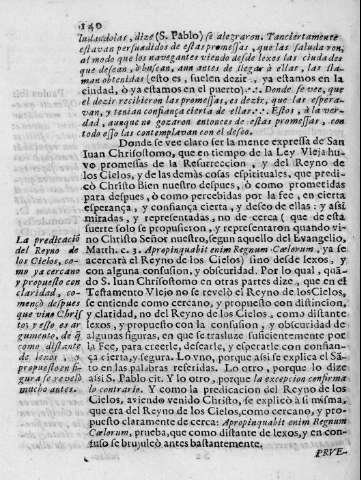 140
ludandolas, dize (S. Pablo) se alegraron. Tanciertamente
estavan persuadidos de estas promessas, que las saludaron,
al modo que los navegantes viendo desde lexos las ciudades
que desean, ò buscan, aun antes de llegar à ellas, las llaman
obtenidas (esto es, suelen dezir, ya estamos en la
ciudad, ò ya estamos en el puerto) Donde se vee, que
el dezir recibieron las promessas, es dezir, que las esperavan,
y tenian confiança cierta de ellas: Estos, à la verdad,
aunque no gozaron entonces de estas promessas, con
todo esso las contemplavan con el deseo.
Donde se vee claro ser la mente expressa de San
Iuan Chrisostomo, que en tiempo de la Ley Vieja huvo
promesias de la Resurreccion, y del Reyno de
los Cielos, y de las demàs cosas espirituales, que predicò
Christo Bien nuestro despues, ò como prometidas
para despues, ò como percebidas por la fee, en cierta
esperança, y confiança cierta, y deseo de ellas: y assi
miradas, y representadas, no de cerca (que de esta
suerte solo se propusieron, y representaron quando vino
Christo Señor nuestro, segun aquello del Evangelio,
Matth. c. 3. Apropinquabit enim Regnum Cœlorum, ya se
acercarà el Reyno de los Cielos) sino desde lexos, y
con alguna confusion, y obscuridad. Por lo qual, quãdo
S. Iuan Chrisostomo en otras partes dize, que en el
Testamento Viejo no se revelò el Reyno de los Cielos,
se entiende como cercano, y propuesto con distincion,
y claridad, no del Reyno de los Cielos, como distante
lexos, y propuesto con la confusion, y obscuridad de
algunas figuras, en que se trasluze suficientemente por
la Fee, para creerle, desearle, y esperarle con confiança
cierta, y segura. Lo vno, porque assi se explica el Sãto
en las palabras referidas. Lo otro, porque lo dize
assi S. Pablo cit. Y lo otro, porque la excepcion confirma
lo contrario. Y como la predicacion del Reyno de los
Cielos, aviendo venido Christo, se explicò à si misma,
que era del Reyno de los Cielos, como cercano, y propuesto
claramente de cerca: Apropinquabit enim Regnum
Cœlorum, prueba, que como distante de lexos, y en confuso
se brujuleò antes bastantemente.
PRVE-
La predicaciõ
del Reyno de
los Cielos, como
ya cercano
y propuesto con
claridad, començò
despues
que vino Christo,
y esso es argumento,
de q̃
como distante
de lexos, y
propuesto en figura
se revelò
mucho antes.